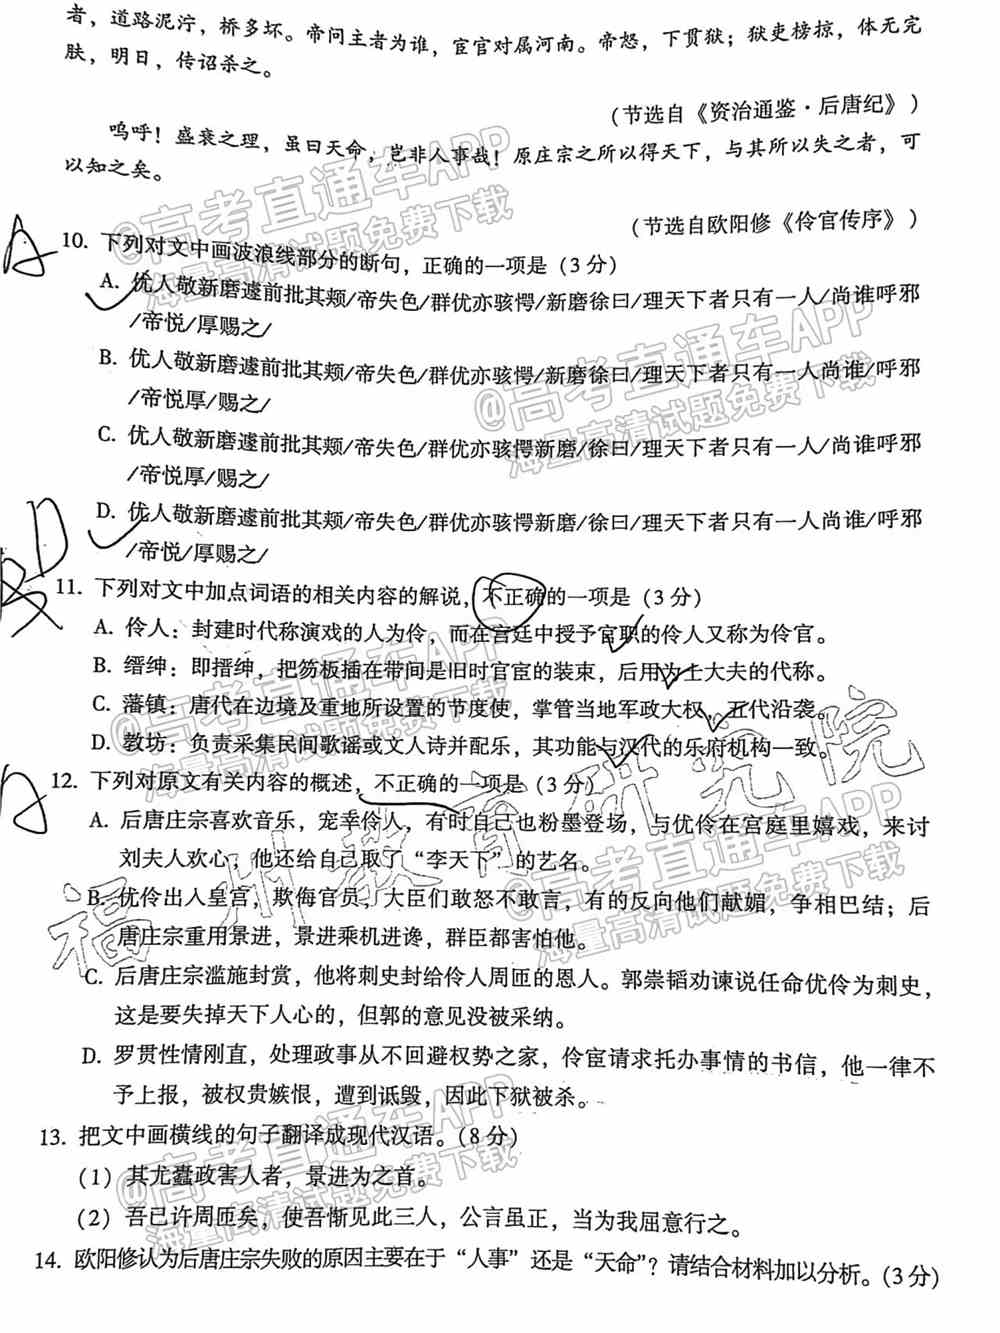 者，道路泥泞，桥多坏。帝问主者为谁，宦官对属河南。帝怒，下贯狱；狱吏榜掠，体无完
肤，明日，传诏杀之。
（节选自《资治通鉴·后唐纪》）
呜呼！盛衰之理，虽曰天命，岂非人事哉！原庄宗之所以得天下，与其所以失之者，可
以知之矣。
（节选自欧阳修《伶官传序》）
A
10. 下列对文中画波浪线部分的断句，正确的一项是（3分）
A. 优人敬新磨遽前批其颊/帝失色/群优亦骇愕/新磨徐曰/理天下者只有一人/尚谁呼邪
/帝悦/厚赐之/
B. 优人敬新磨遽前批其颊/帝失色/群优亦骇愕/新磨徐曰/理天下者只有一人尚谁/呼邪
/帝悦厚/赐之/
C. 优人敬新磨遽前批其颊/帝失色/群优亦骇愕新磨/徐曰/理天下者只有一人/尚谁呼邪
/帝悦厚/赐之/
D. 优人敬新磨遽前批其颊/帝失色/群优亦骇愕新磨/徐曰/理天下者只有一人尚谁/呼邪
/帝悦/厚赐之/
D
11. 下列对文中加点词语的相关内容的解说，不正确的一项是（3分）
A. 伶人：封建时代称演戏的人为伶，而在宫廷中授予官职的伶人又称为伶官。
B. 缙绅：即搢绅，把笏板插在带间是旧时官宦的装束，后用为士大夫的代称。
C. 藩镇：唐代在边境及重地所设置的节度使，掌管当地军政大权，五代沿袭。
D. 教坊：负责采集民间歌谣或文人诗并配乐，其功能与汉代的乐府机构一致。
12. 下列对原文有关内容的概述，不正确的一项是（3分）
A. 后唐庄宗喜欢音乐，宠幸伶人，有时自己也粉墨登场，与优伶在宫庭里嬉戏，来讨
刘夫人欢心，他还给自己取了“李天下”的艺名。
B. 优伶出入皇宫，欺侮官员，大臣们敢怒不敢言，有的反向他们献媚，争相巴结；后
唐庄宗重用景进，景进乘机进谗，群臣都害怕他。
C. 后唐庄宗滥施封赏，他将刺史封给伶人周匝的恩人。郭崇韬劝谏说任命优伶为刺史，
这是要失掉天下人心的，但郭的意见没被采纳。
D. 罗贯性情刚直，处理政事从不回避权势之家，伶宦请求托办事情的书信，他一律不
予上报，被权贵嫉恨，遭到诋毁，因此下狱被杀。
13. 把文中画横线的句子翻译成现代汉语。（8分）
（1）其尤蠹政害人者，景进为之首。
（2）吾已许周匝矣，使吾惭见此三人，公言虽正，当为我屈意行之。
14. 欧阳修认为后唐庄宗失败的原因主要在于“人事”还是“天命”？请结合材料加以分析。（3分）
@高考直通车APP
海量高清试题免费下载
@高考直通车APP
海量高清试题免费下载
@高考直通车APP
海量高清试题免费下载
@高考直通车APP
海量高清试题免费下载
@高考直通车APP
海量高清试题免费下载
福州教育研究院